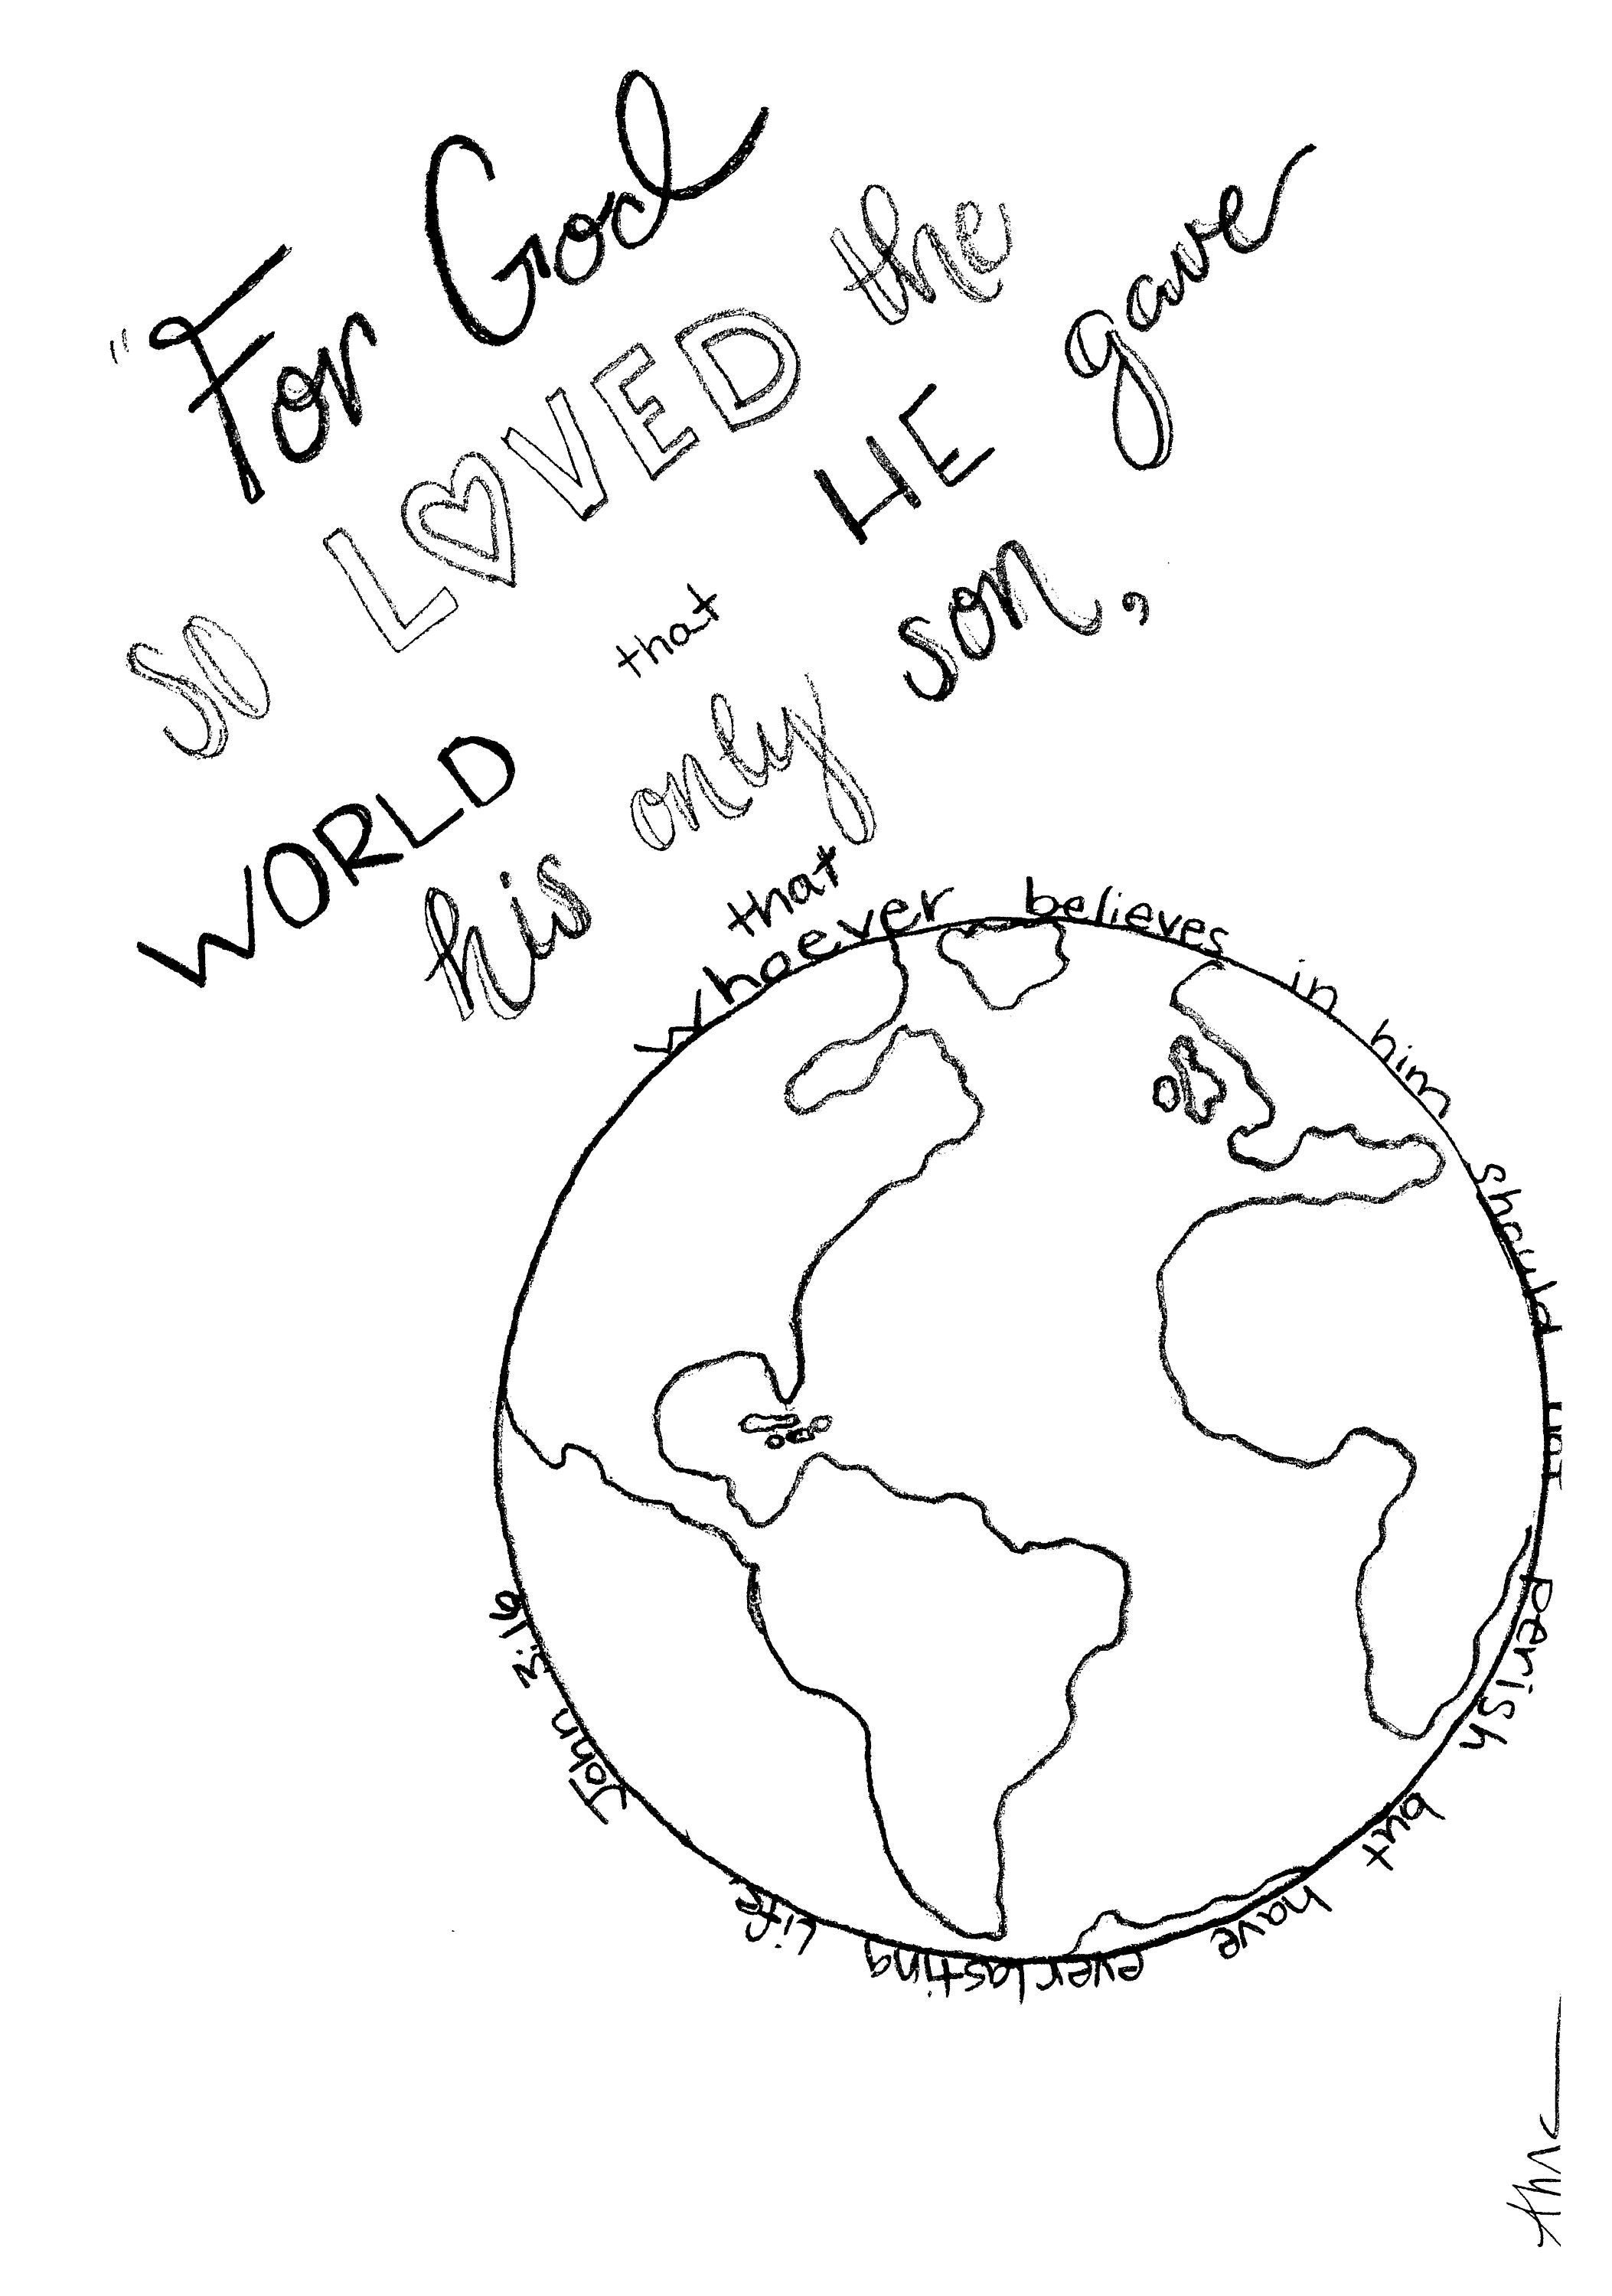 "For God
so LOVED the
WORLD that HE gave
his only son,
that
whoever believes in him should not perish but have everlasting life
John 3:16